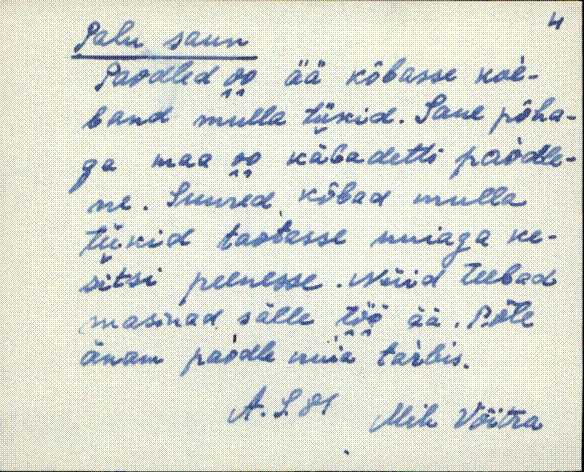 4
Palu saun
Paodled oo ää kõbasse koè-
band mulla tükid. Saue põha-
ga maa oo käbadetti paòdle-
ne. Suured kõbad mulla
tükid taotasse nuiaga ke-
sitsi peenesse. Nüid teebad
masinad sälle töö ää. Põle
änam paòdle nuia tarbis.
A. L. 81 Mih Võitra